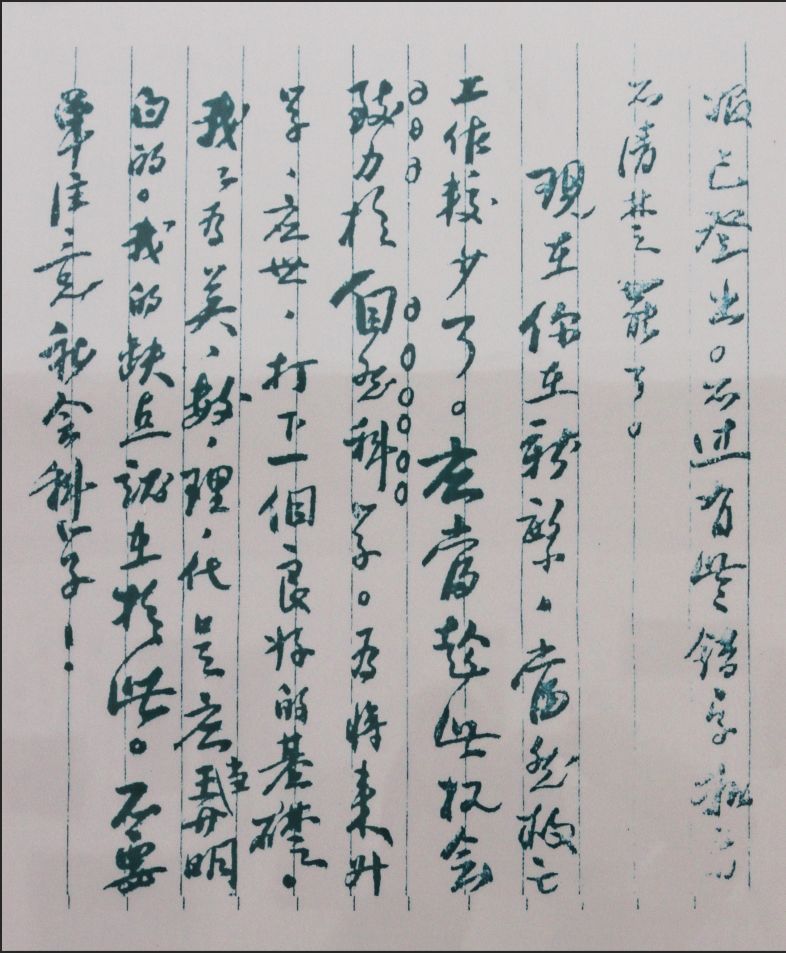 报已登出。不过有些错字执行
不清楚罢了。
现在你在新黎，当然救亡
工作较少了。应当趁此机会
致力於自然科学。为将来升
学、应世，打下一個良好的基礎。
我以为英、数、理、化是应当弄明
白的。我的缺点就在於此。不要
单注意社会科学！